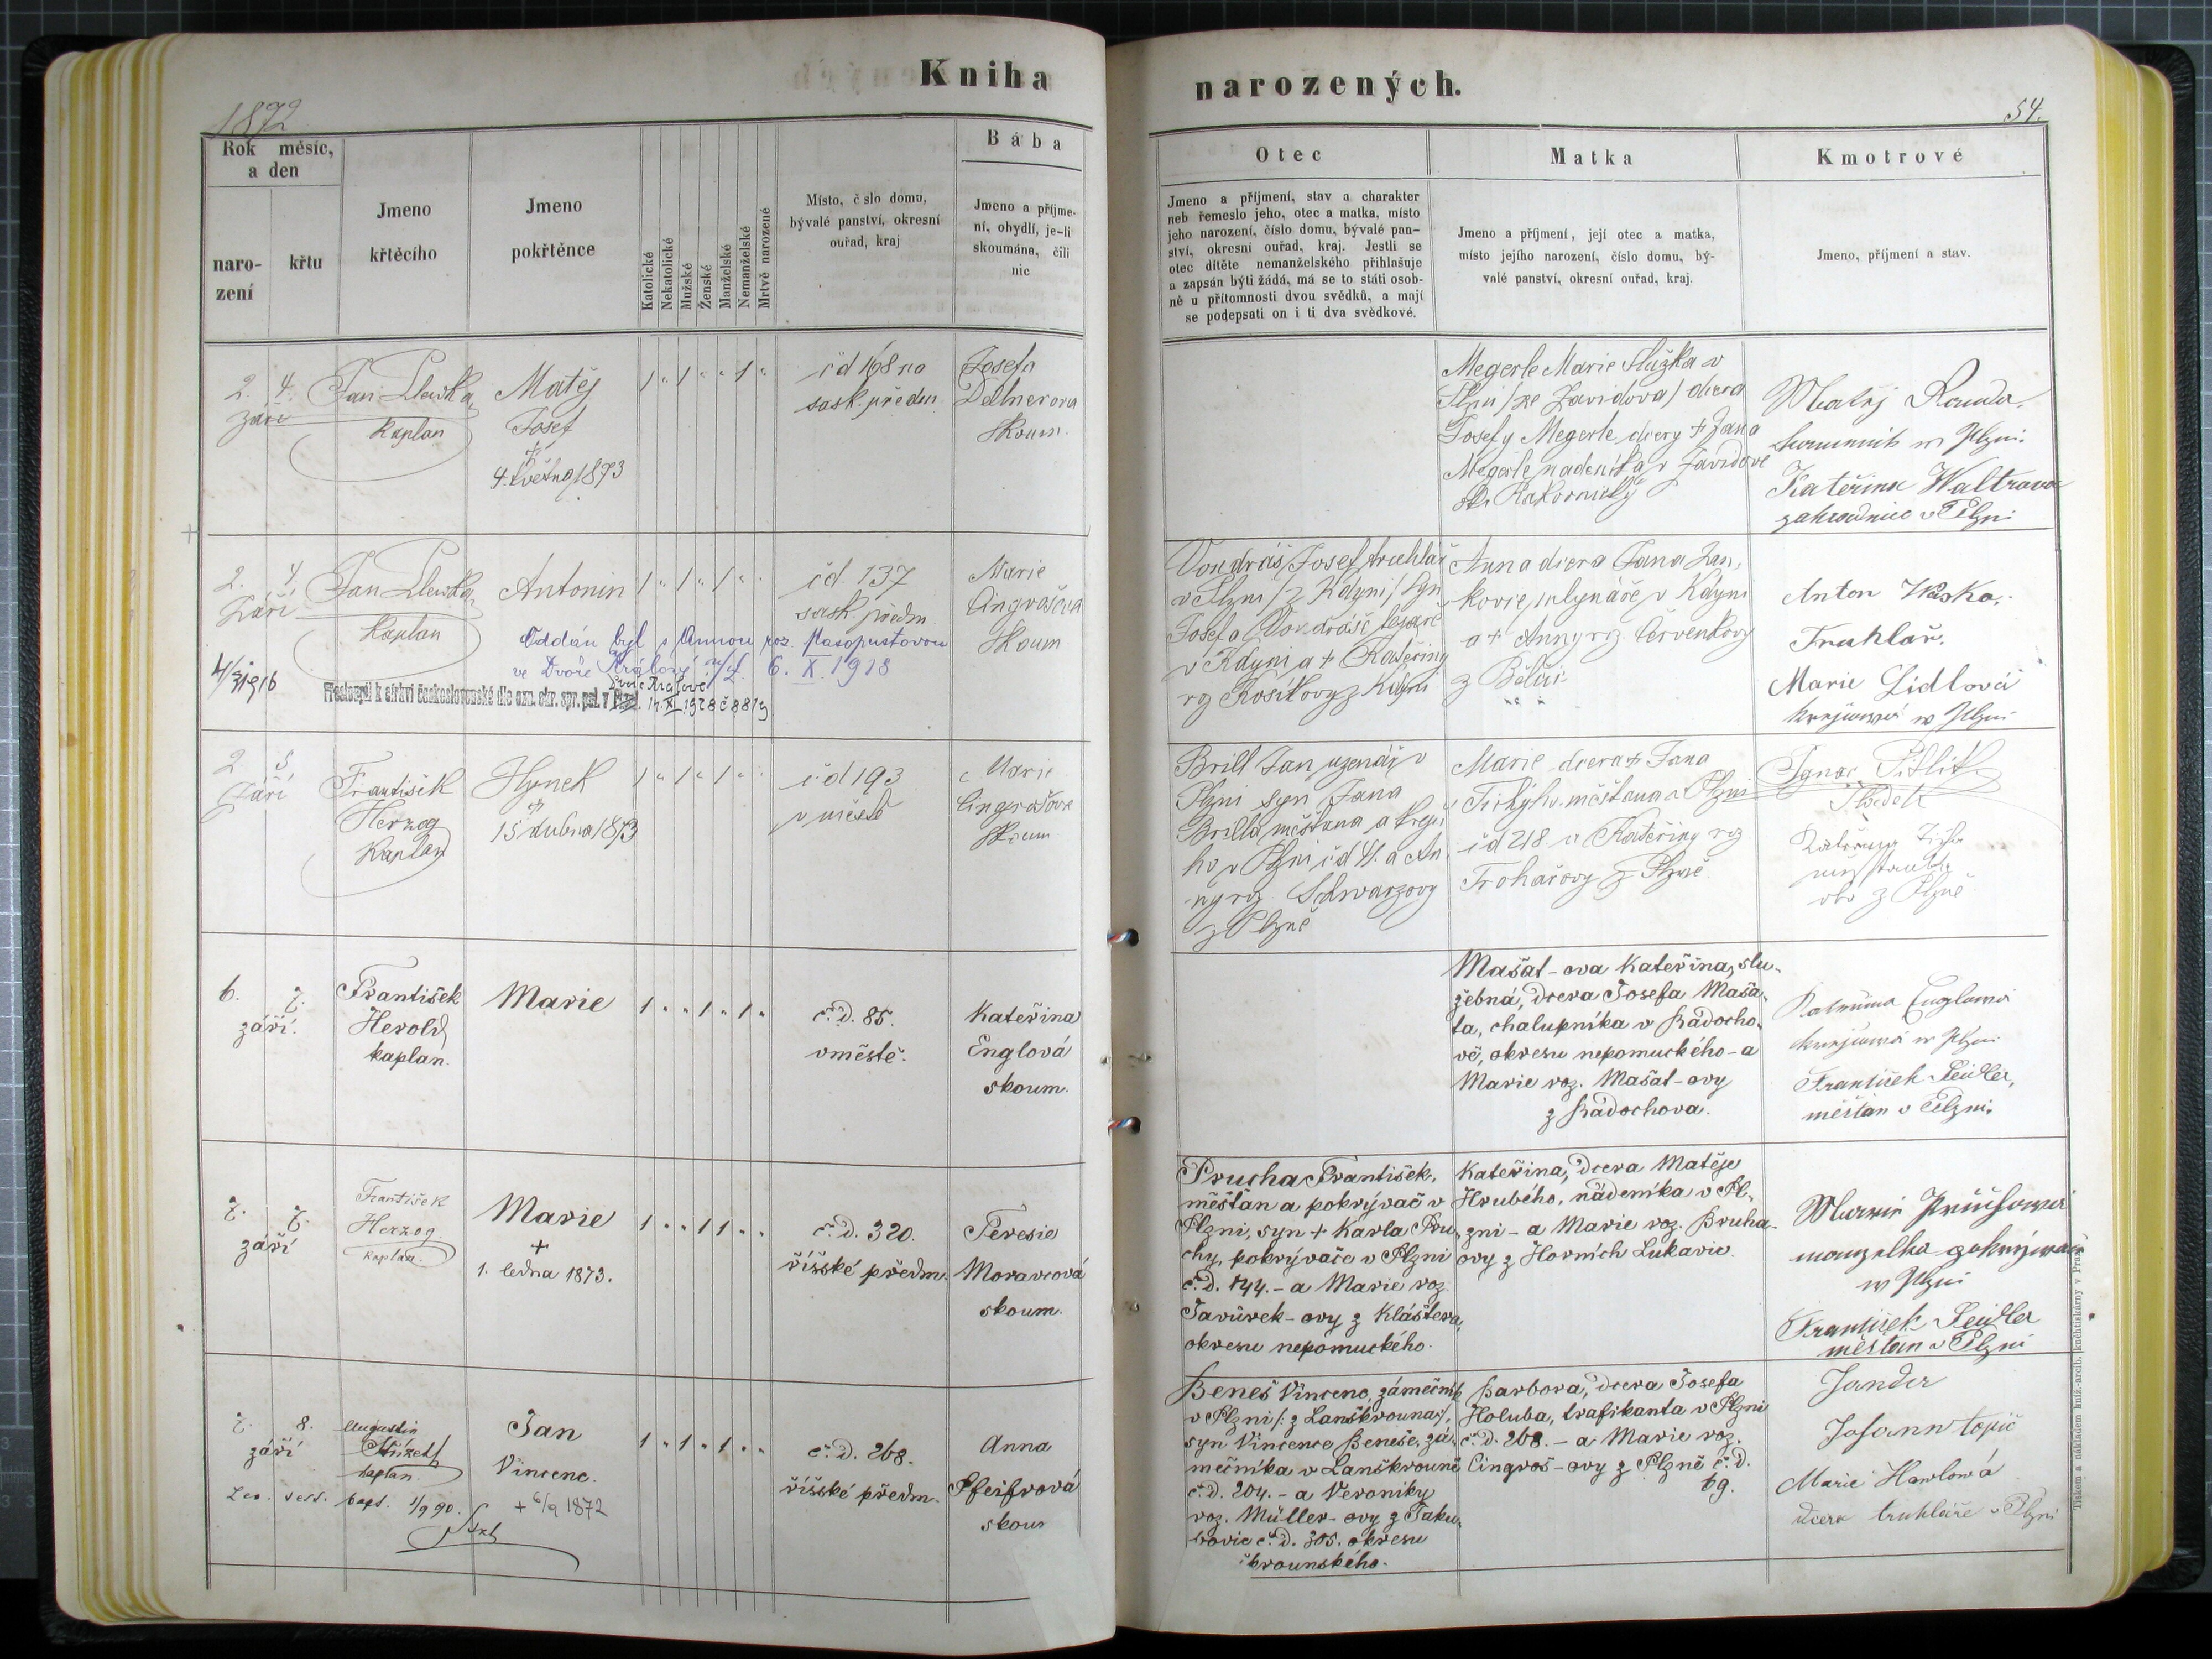 Kniha
1872
Rok měsíc,
a den
naro-
zení
křtu
Jmeno
křtěcího
Jmeno
pokřtěnce
Katolické
Nekatolické
Mužské
Ženské
Manželské
Nemanželské
Mrtvě narozené
Místo, č slo domu,
bývalé panství, okresní
ouřad, kraj
Bába
Jmeno a příjme-
ní, obydlí, je-li
skoumána, čili
nic
2. 4.
září
Jan
Kaplan
Matěj
Josef
†
4. května 1873
1 " 1 " " 1 "
čd 168 no
sask. předm
Josefa
Skoum.
2. 4.
Září
Jan
Kaplan
Antonin
1 " 1 " 1 " "
čd. 137
sask předm.
Marie
Cingrošova
Skoum
Oddán byl s Annou roz. Masopustovou
ve Dvoře Králové n/L. 6. X. 1918
Přestoupil k církvi československé dle ozn. okr. spr. pol. v
Dvoře Králové
14. XI 1928 č 8819
2 5
Září
František
Herzog
Kaplan
Hynek
†
15 dubna 1873
1 " 1 " 1 " "
čd 193
v městě
Marie
Cingrošova
Skoum
6. 7.
září.
František
Herold
kaplan.
Marie
1 " " 1 " 1 "
č. d. 85.
v městě.
Kateřina
Englová
skoum.
7. 7.
září
František
Herzog
kaplan.
Marie
+
1. ledna 1873.
1 " " 1 1 " "
č. d. 320.
říšské předm.
Teresie
Moravcová
skoum.
7. 8.
září
Augustin
kaplan.
Jan
Vincenc.
+ 6/9 1872
1 " 1 " 1 " "
č. d. 268.
říšské předm.
Anna
Pfeifrová
skoum
bapt. 1/9 90.
narozených.
54.
Otec
Jmeno a příjmení, stav a charakter
neb řemeslo jeho, otec a matka, místo
jeho narození, číslo domu, bývalé pan-
ství, okresní ouřad, kraj. Jestli se
otec dítěte nemanželského přihlašuje
a zapsán býti žádá, má se to státi osob-
ně u přítomnosti dvou svědků, a mají
se podepsati on i ti dva svědkové.
Matka
Jmeno a příjmení, její otec a matka,
místo jejího narození, číslo domu, bý-
valé panství, okresní ouřad, kraj.
Kmotrové
Jmeno, příjmení a stav.
Megerle Marie služka v
Plzni /ze Zavidova/ dcera
Josefy Megerle dcery + Jana
Megerle nadeníka v Zavidově
Matěj Rauda
w Plzni.
Kateřina Waltrova
zahradnice v Plzni
Vondráš Josef truhlář
v Plzni /z Kdyni/ syn
Josefa Vondráše
v Kdyni a + Kateřiny
rz Kosíkovy z Kdyni
Anna dcera Jana Jan,
kovce, mlynáře v Kdyni
a + Anny rz. Červenkovy
z
Anton
Truhlář.
Marie Lidlová
w Plzni
Brill Jan uzenář v
Plzni syn Jana
Brilla měštana a krejčí
ho v Plzni čd 41. a An
ny rz. Schwarzovy
z Plzně
Marie dcera + Jana
Tichýho měštana v Plzni
čd 218 a Kateřiny rz
z Plzně
Ignac
z Plzně
Mašat-ova Kateřina, slu-
žebná, dcera Josefa Maša-
ta, chalupníka v Radocho-
vě, okresu nepomuckého - a
Marie roz. Mašat-ovy
z Radochova.
Kateřina Englová
w Plzni
František Seidler,
měštan v Plzni.
Prucha František,
měštan a pokrývač v
Plzni, syn + Karla Pru-
chy, pokrývače v Plzni
č. d. 144. - a Marie roz.
Javůrek-ovy z Kláštera,
okresu nepomuckého.
Kateřina, dcera Matěje
Hrubého, nádeníka v Pl-
zni - a Marie roz. Bruha-
ovy z Horních Lukavic.
Marie
manželka pokrývače
w Plzni
František Seidler
měštan v Plzni
Beneš Vincenc, zámečník
v Plzni /: z Lanškrouna:/,
syn Vincence Beneše, zá-
mečníka v Lanškrouně
č. d. 204. - a Veroniky
roz. Müller-ovy z Jaku-
bovic č. d. 305. okresu
škrounského.
Barbora, dcera Josefa
Holuba, trafikanta v Plzni
č. d. 268. - a Marie roz.
Cingroš-ovy z Plzně č. d.
69.
Jander
Johann topič
Marie Hawlowá
dcera truhláře v Plzni
Tiskem a nákladem kníž.-arcib. knihtiskárny v Praze